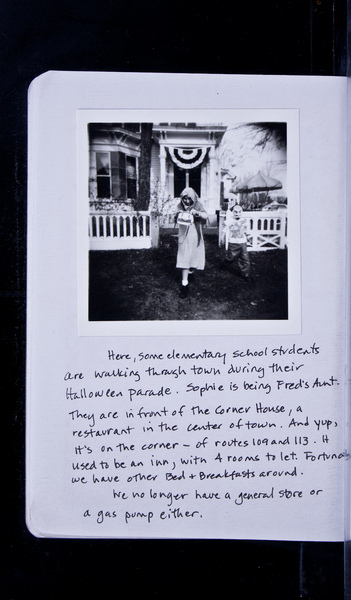 Here, some elementary school students
are walking through town during their
Halloween parade. Sophie is being Fred's Aunt.
They are in front of the Corner House, a
restaurant in the center of town. And yup,
it's on the corner - of routes 109 and 113. It
used to be an inn, with 4 rooms to let. Fortunately
we have other Bed + Breakfasts around.
We no longer have a general store or
a gas pump either.